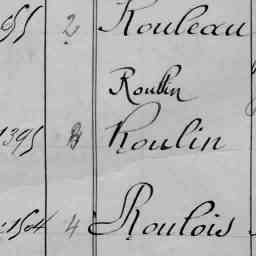 95 2 Rouleau
Roullin
1395 8 Roulin
1504 4 Roulois